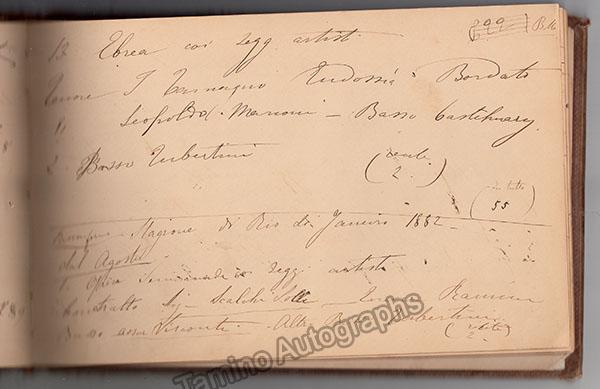 B. 16
13 Ebrea coi segg artisti
Tenore I Tamagno Eudossia Bordato
Leopoldo Mancini - Basso Castelmary
2 Basso Tubertini
(recite
2.)
(in tutto
55)
Stagione di Rio de Janeiro 1882
dal Agosto
Opera Semiramide coi segg artisti
Contralto Sig Scalchi Lolli
Basso Visconti - Altro Basso Tubertini
(recite
2.)
Tamino Autographs